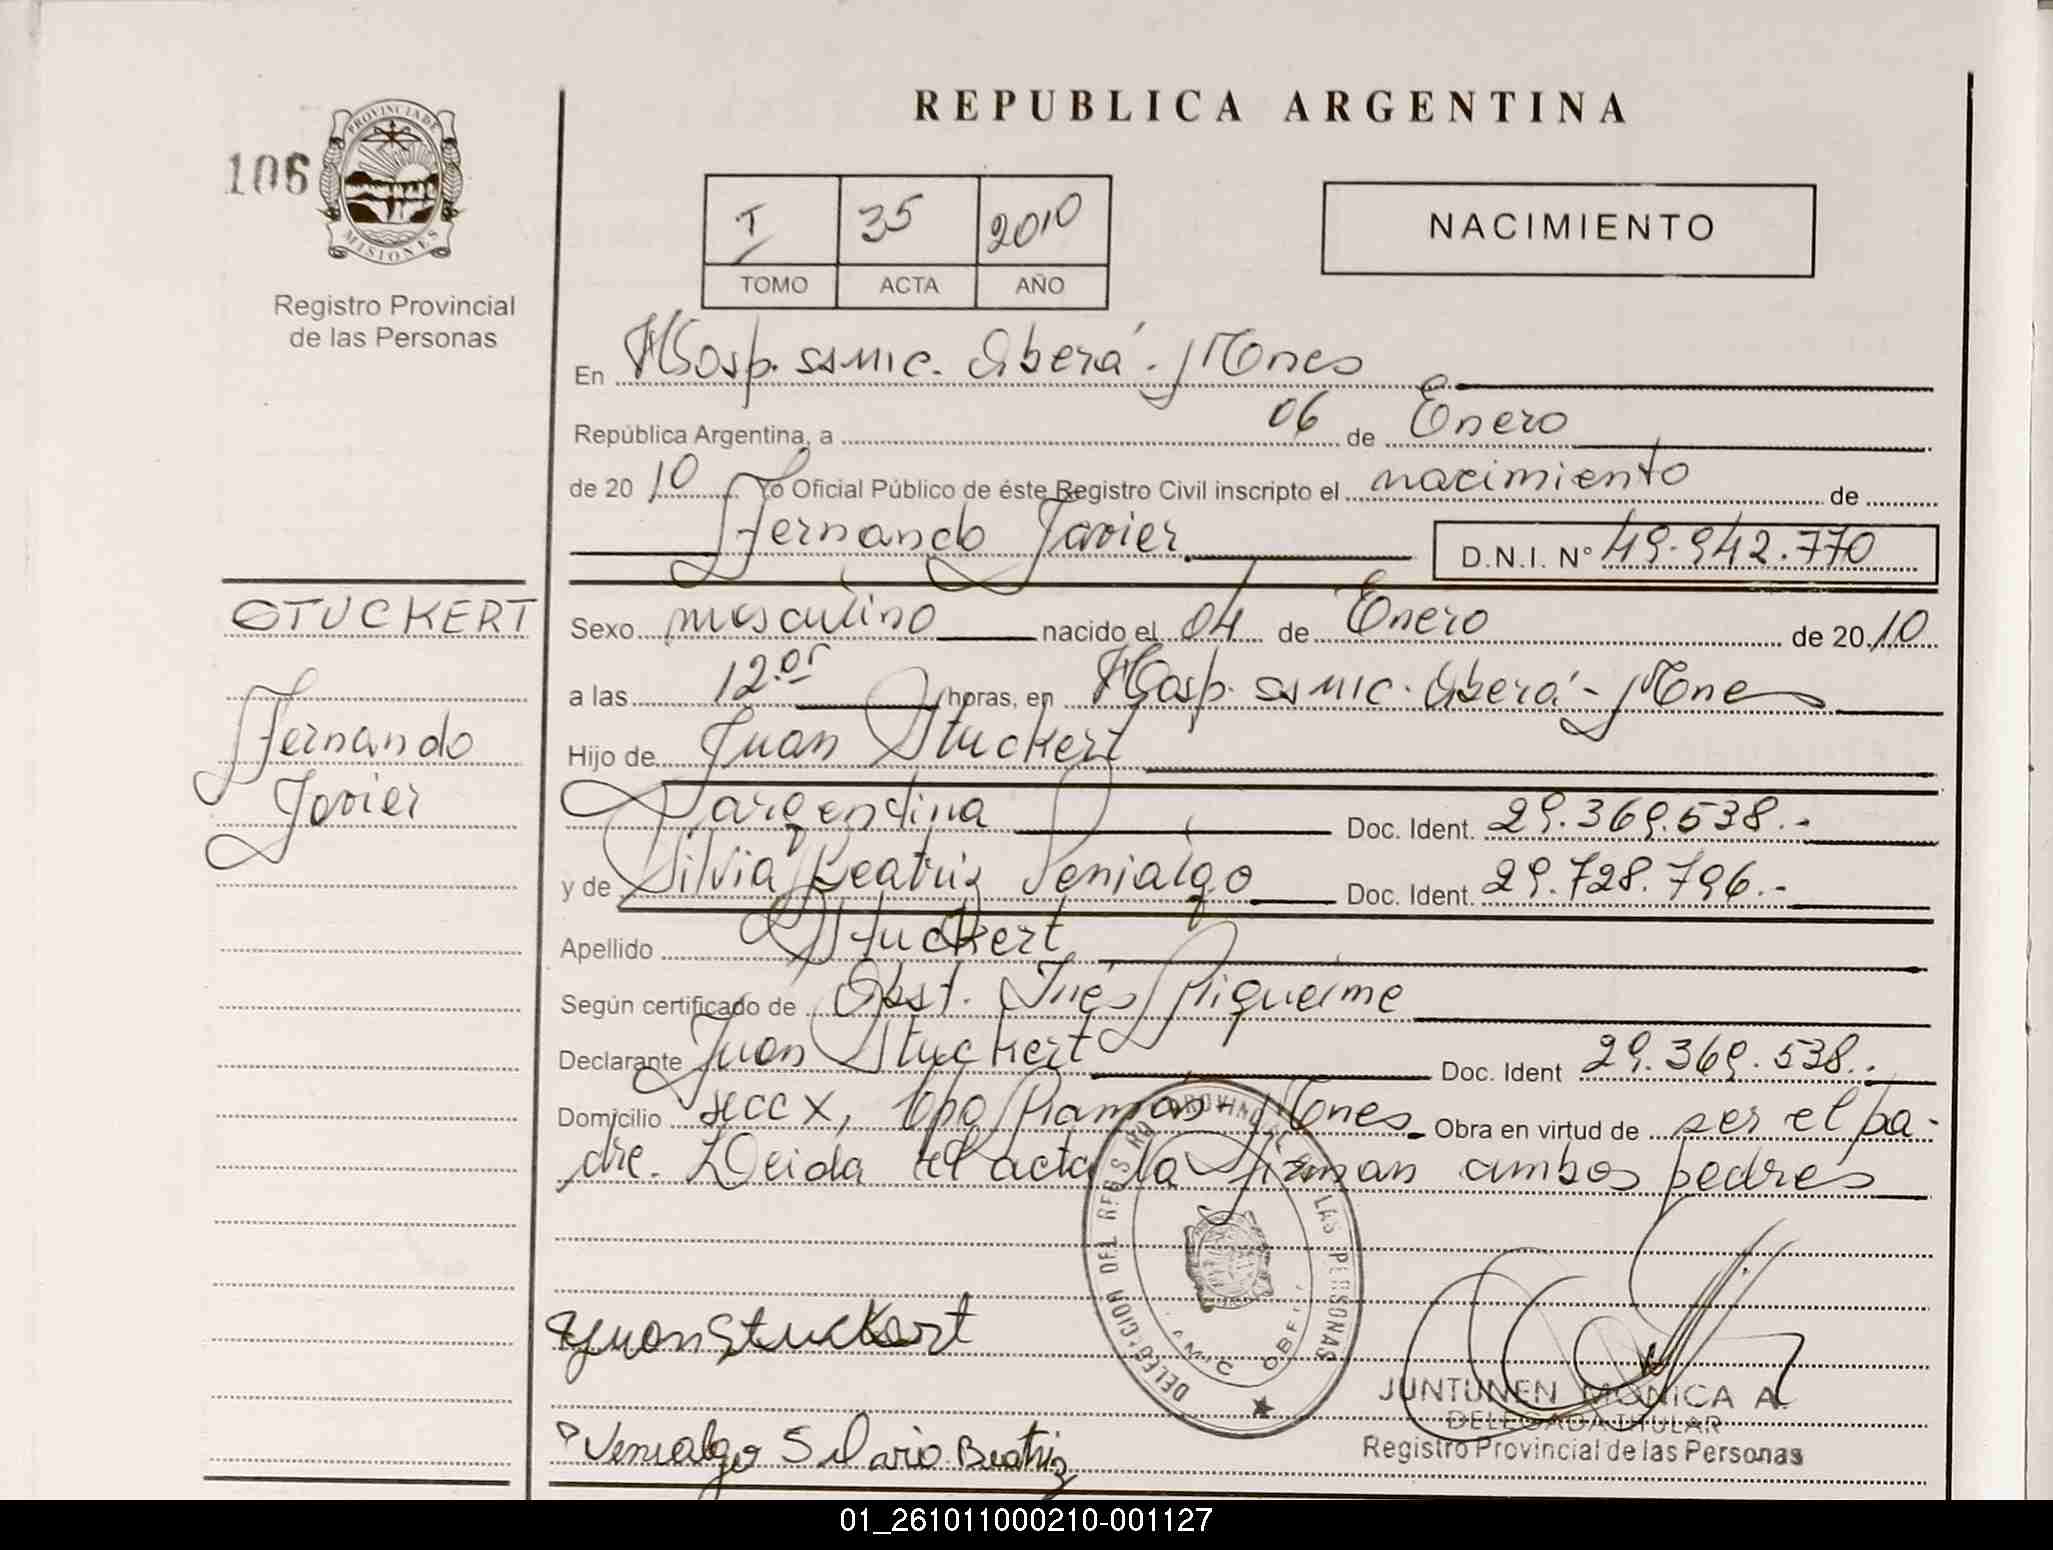 REPUBLICA ARGENTINA
106
PROVINCIA DE
MISIONES
Registro Provincial
de las Personas
I 35 2010
TOMO ACTA AÑO
NACIMIENTO
En Hosp. SAMIC. Oberá - Mones
República Argentina, a 06 de Enero
de 20 10 Yo Oficial Público de éste Registro Civil inscripto el nacimiento de
Fernando Javier D.N.I. Nº 49.942.770
STUCKERT
Fernando
Javier
Sexo masculino nacido el 04 de Enero de 20 10
a las 12.05 horas, en Hosp. SAMIC. Oberá - Mones
Hijo de Juan Stuckert
argentina Doc. Ident. 29.369.538.-
y de Silvia Beatriz Venialgo Doc. Ident. 29.728.796.-
Apellido Stuckert
Según certificado de Obst. Inés
Declarante Juan Stuckert Doc. Ident 29.369.538..
Domicilio secc X, Cpo Ramón - Mones Obra en virtud de ser el pa-
dre. Leida el acta la firman ambos padres
DELEGACION DEL REGISTRO PROVINCIAL DE LAS PERSONAS
Juan Stuckert
JUNTUNEN MONICA A.
DELEGADA TITULAR
Registro Provincial de las Personas
Venialgo Beatriz
01_261011000210-001127